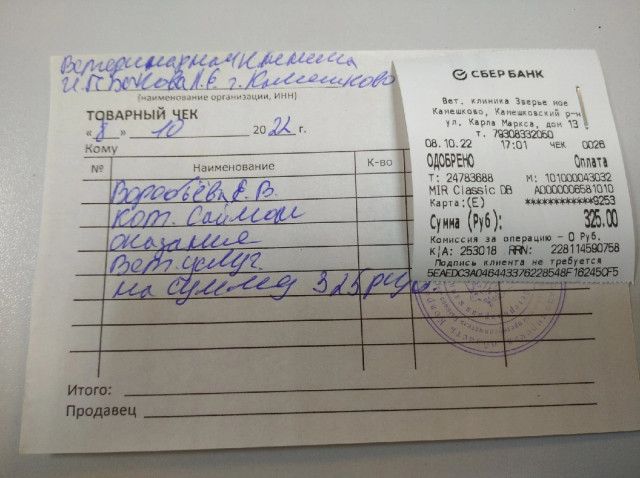 Ветеринарная клиника
ИП Быкова Л.Е. г. Камешково
(наименование организации, ИНН)
ТОВАРНЫЙ ЧЕК
« 8 » 10 2022 г.
Кому
№ Наименование К-во
Воробьёва Е. В.
кот. Саймон
оказание
Вет. услуг
на сумму 325 руб.
Итого:
Продавец
СБЕРБАНК
Вет. клиника Зверье мое
Камешково, Камешковский р-н
ул. Карла Маркса, дом 13
т. 79308332060
08.10.22 17:01 ЧЕК 0026
ОДОБРЕНО Оплата
Т: 24783688 М: 101000043032
MIR Classic DB A0000006581010
Карта:(E) ************9253
Сумма (Руб): 325.00
Комиссия за операцию - 0 Руб.
К/А: 253018 RRN: 228114590758
Подпись клиента не требуется
5EAEDC3A046443376228548F16245CF5